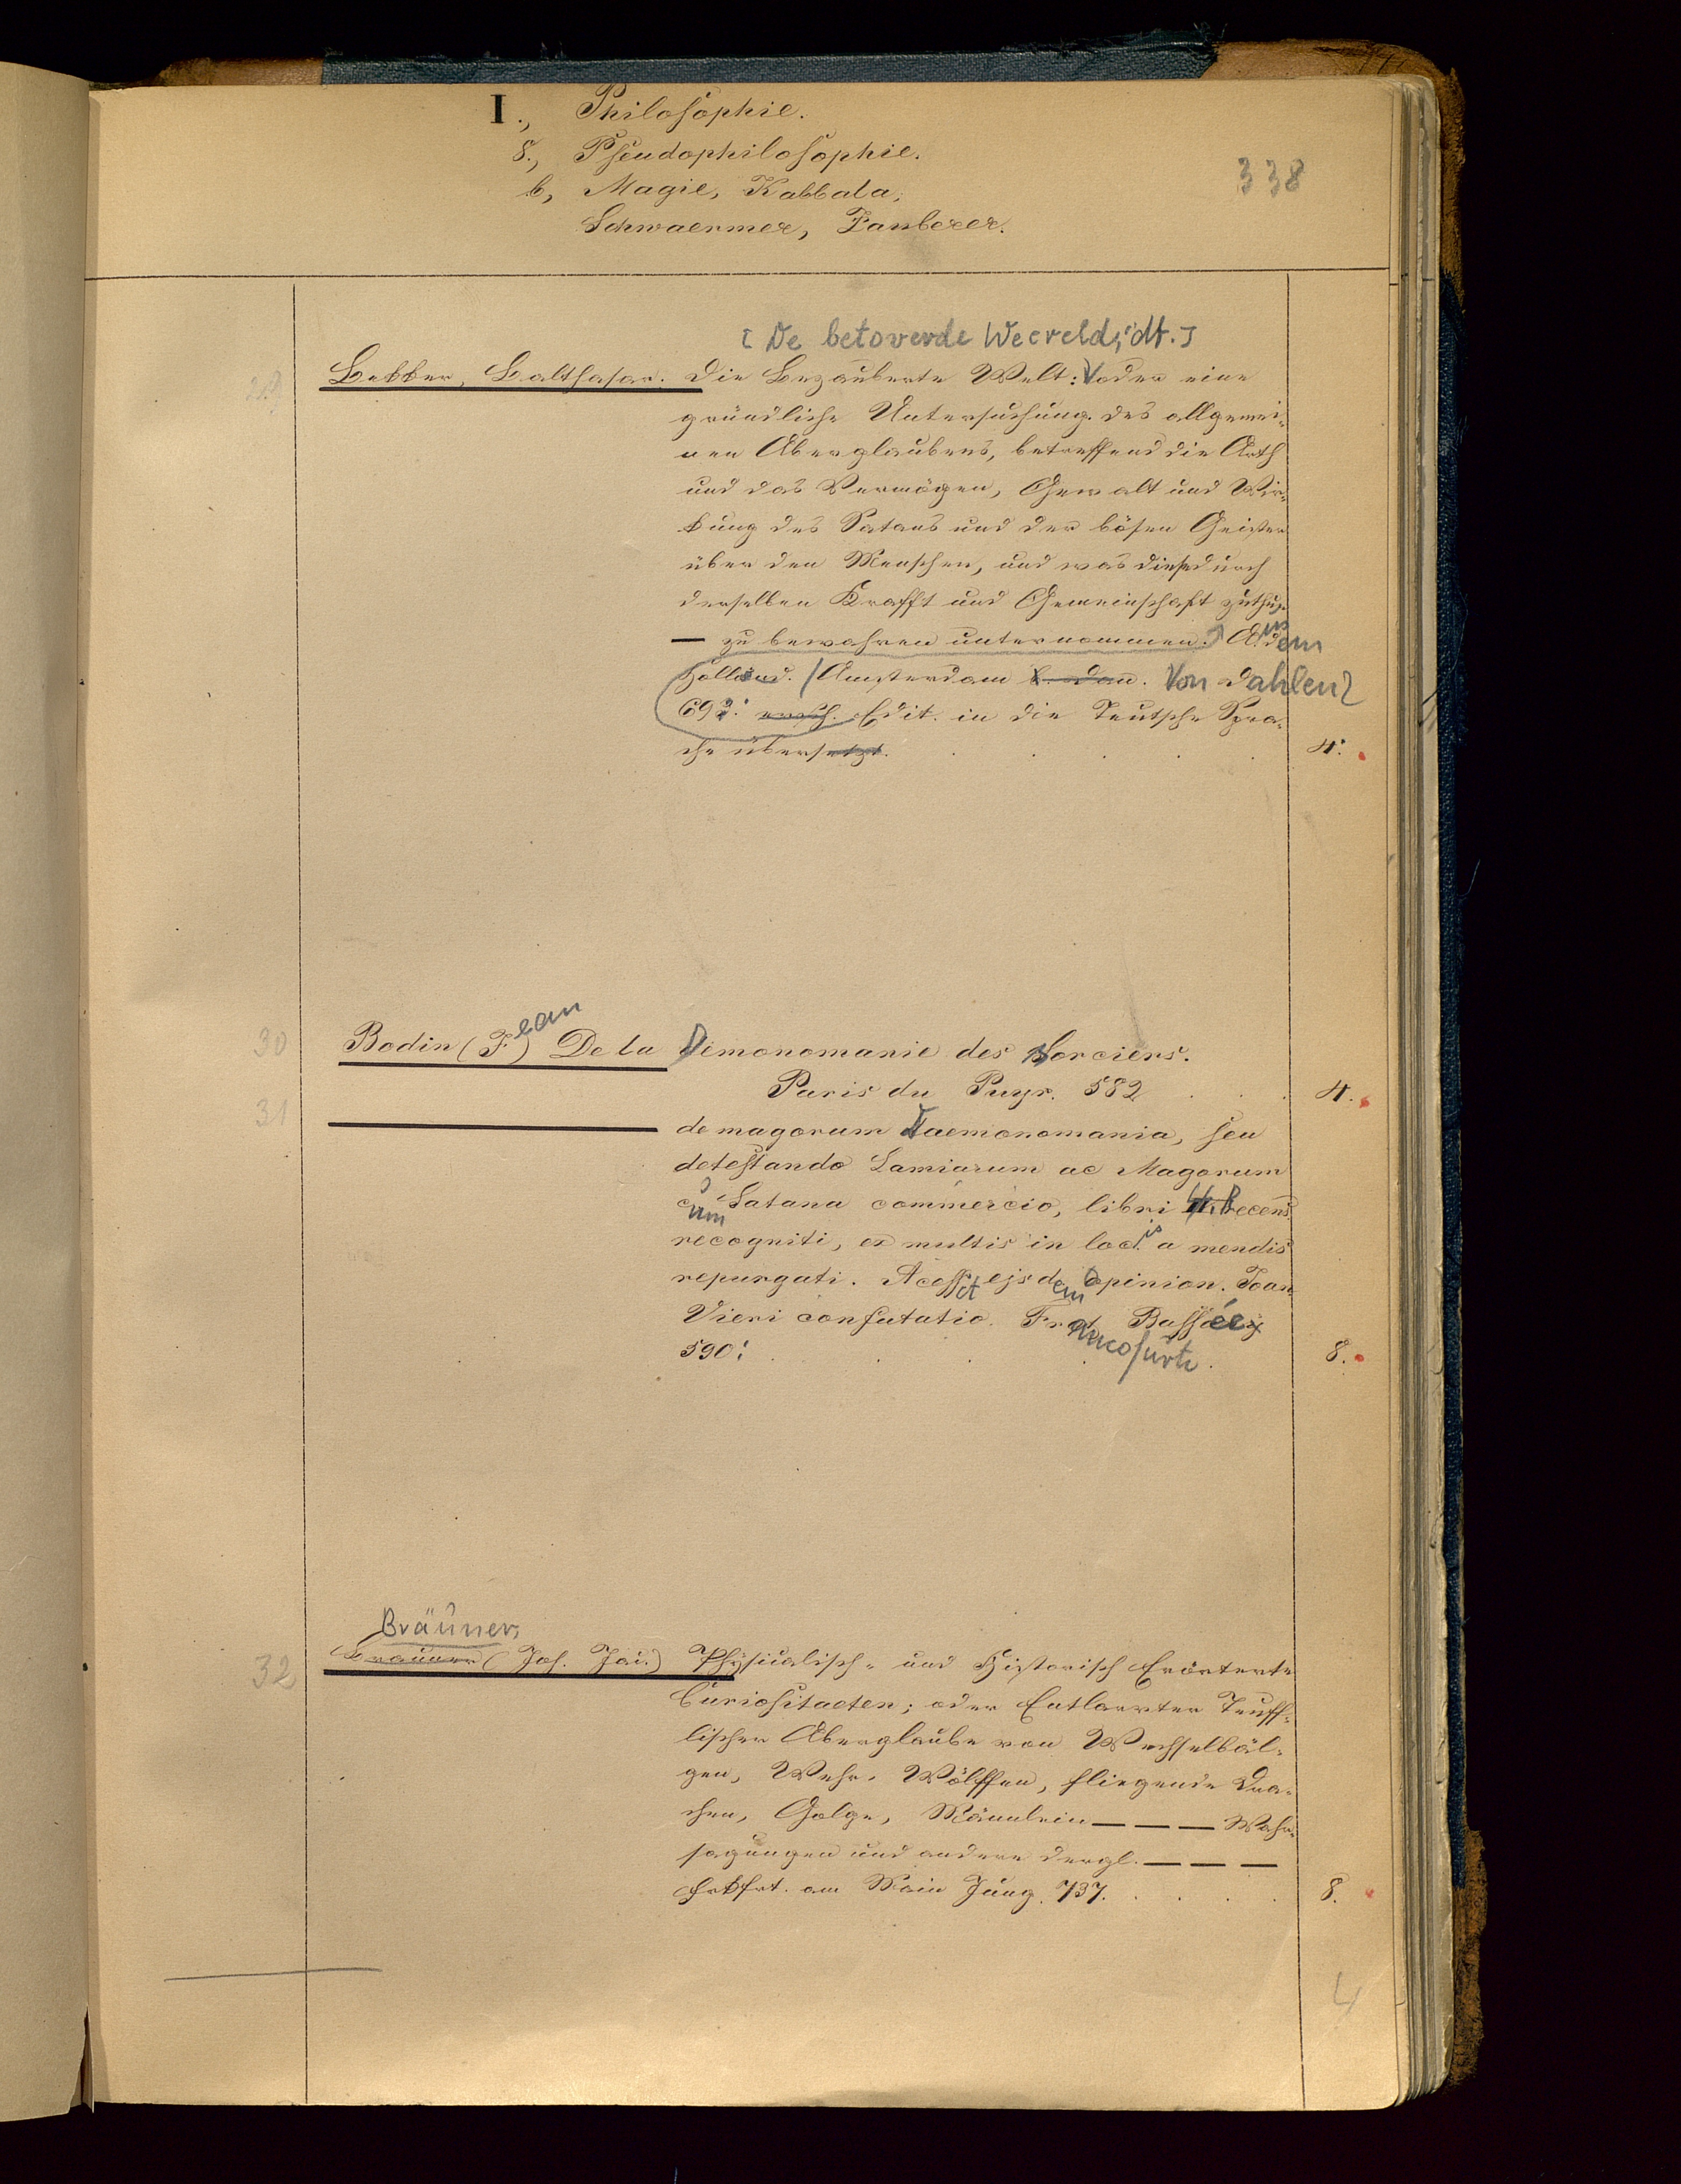 I., Philosophie.
8., Pseudophilosophie.
b, Magie, Kabbala,
Schwaermer, Zauberer.
338
[De betoverde Weereld, dt.]
29
Bekker, Balthasar. Die Bezauberte Welt: oder eine
gründliche Untersuchung des allgemei-
nen Aberglaubens, betreffend die Arth
und das Vermögen, Gewalt und Wir-
kung des Satans und der bösen Geister
über den Menschen, und was diese durch
derselben Krafft und Gemeinschaft zuthu.
— zu bewahren unternommen. Aus dem
Holländ. Amsterdam Von Dahlen
693. Edit. in die Teutsche Spra-
che übersetzt. 4.
30
Bodin (Jean) De la Demonomanie des Sorciers.
Paris du Puys. 582 4.
31
— de magorum Daemonomania, seu
detestando Lamiarum ac Magorum
cum Satana commercio, libri 4. Recens
recogniti, et multis in locis a mendis
repurgati. Acesst ejsdem opinion. Joan.
Vieri confutatio. Francofurti Bassée
590. 8.
Bräuner,
32
Brauner (Joh. Jac.) Physicalisch- und Historisch Erörterte
Curiositaeten; oder Entlarvter Teuff-
lischer Aberglaube von Wechselbäl-
gen, Wehr-Wölffen, fliegende Dra-
chen, Galge, Männlein — — — Wahr-
sagungen und andere dergl. — — —
Frkfrt. am Main Jung. 737. 8.
4